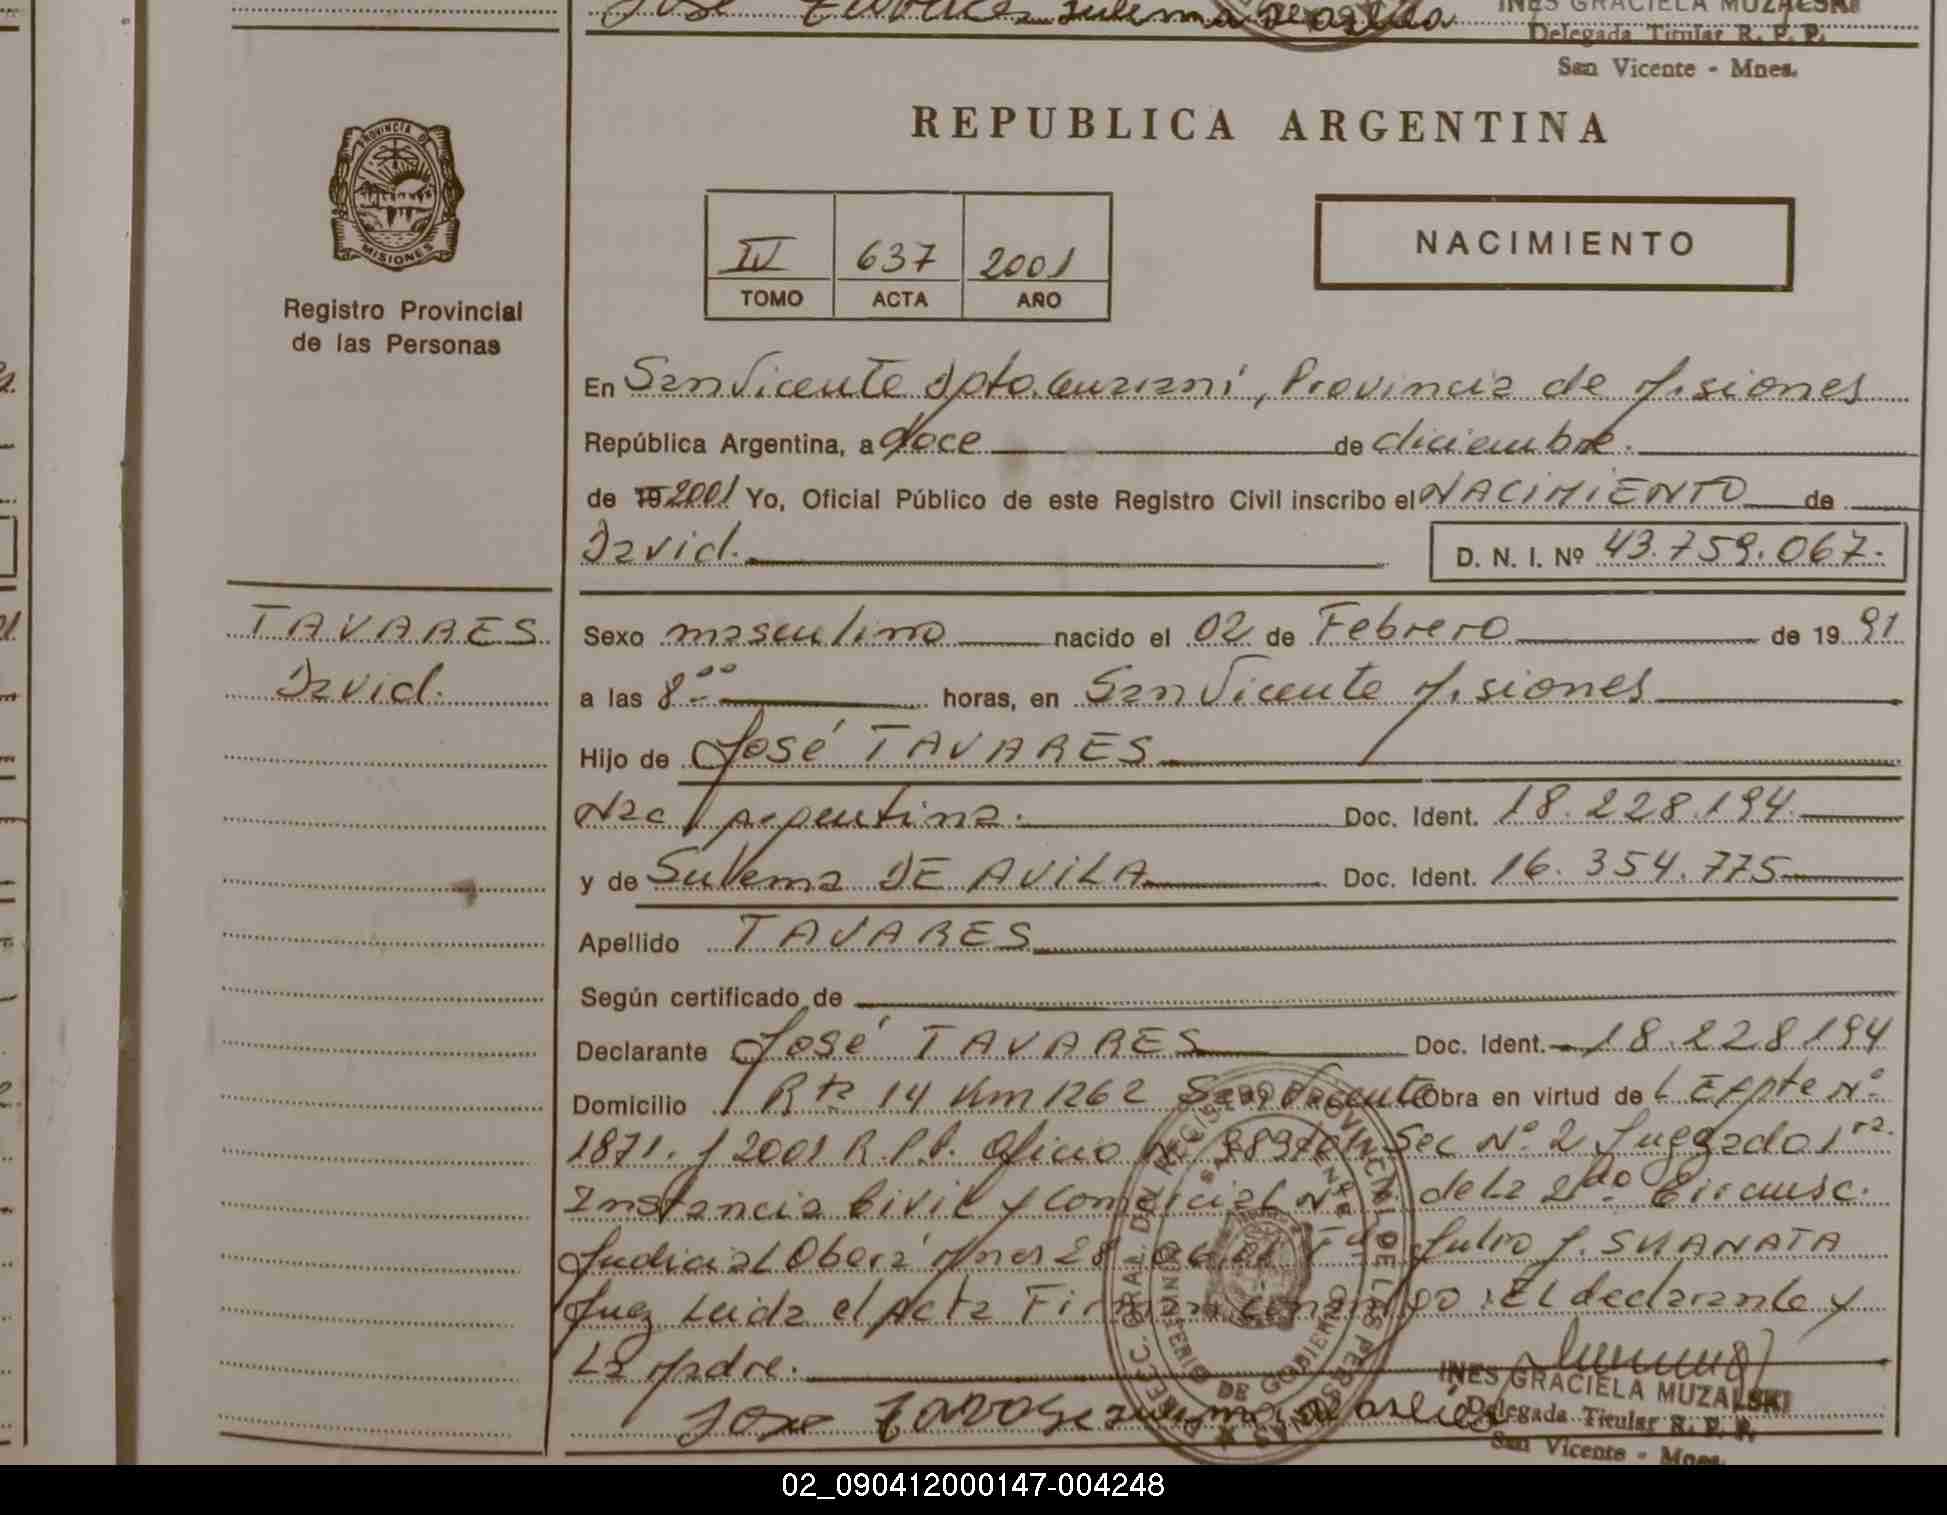 José Tavares Sulema de avila
INES GRACIELA MUZALSKI
Delegada Titular R. P. P.
San Vicente - Mnes.
REPUBLICA ARGENTINA
PROVINCIA DE
MISIONES
Registro Provincial
de las Personas
IV 637 2001
TOMO ACTA AÑO
NACIMIENTO
En San Vicente Dpto. Guaraní, Provincia de Misiones
República Argentina, a doce de diciembre.
de 19 2001 Yo, Oficial Público de este Registro Civil inscribo el NACIMIENTO de
David. D. N. I. Nº 43.759.067.
TAVARES
David.
Sexo masculino nacido el 02 de Febrero de 19 91
a las 8.00 horas, en San Vicente Misiones
Hijo de José TAVARES
Nac/ Argentina. Doc. Ident. 18.228.194.
y de Sulema DE AVILA Doc. Ident. 16.354.775
Apellido TAVARES
Según certificado de
Declarante José TAVARES Doc. Ident. 18.228194
Domicilio Rta 14 Km 1262 San Vicente Obra en virtud de L Expte Nº
1871. / 2001 R.P.P. Oficio Nº Sec Nº 2 Juzgado 1ra.
Instancia Civil y Comercial Nº de La 2da Circunsc.
Judicial Oberá Mnes 28 Fdo Julio J. SKANATA
Juez Leida el Acta Firman conmigo: El declarante y
La Madre.
INES GRACIELA MUZALSKI
Delegada Titular R. P. P.
San Vicente - Mnes.
Jose Tavares sulema de avila
DIRECC. GRAL. DEL REGISTRO PROVINCIAL DE LAS PERSONAS
SAN VICENTE
MINISTERIO DE GOBIERNO
02_090412000147-004248